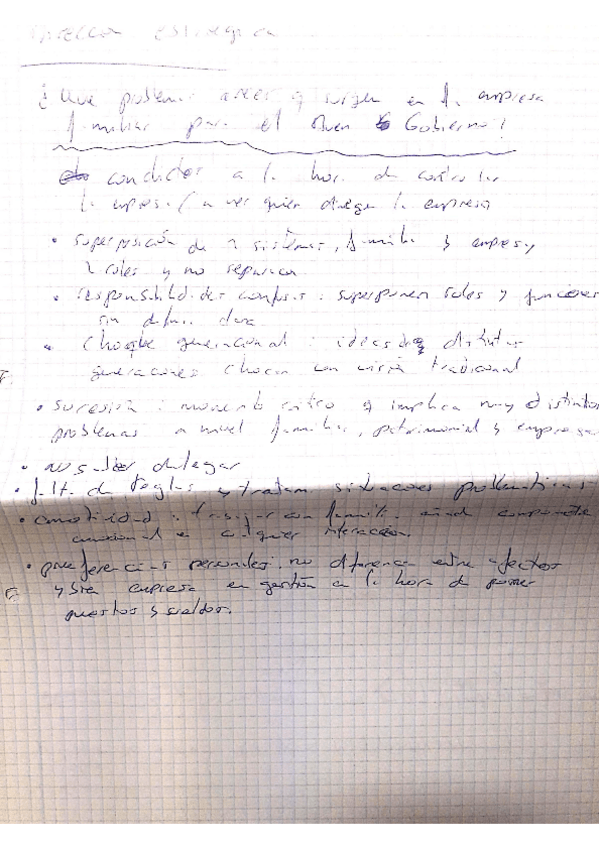 Dirección estratégica
¿Que problemas creer q surgen en la empresa
familiar para el Buen Gobierno?
conductos a la hora de controlar
la empresa / a ver quien dirige la empresa
• superposición de 2 sistemas, familia y empresa,
2 roles y no separación
• responsabilidades confusas: superponen roles y funciones
sin definir
• Choque generacional: ideas de distintas
generaciones chocan con visión tradicional
• sucesión: momento crítico q implica muy distintos
problemas a nivel familiar, patrimonial y empresarial
• no saber delegar
• falta de reglas q tratan situaciones problemáticas
• emotividad: trabajar con familia añade componente
emocional en cualquier interacción.
• preferencias personales: no diferencia entre afectos
y bien empresa en gestión a la hora de poner
puestos y sueldos.